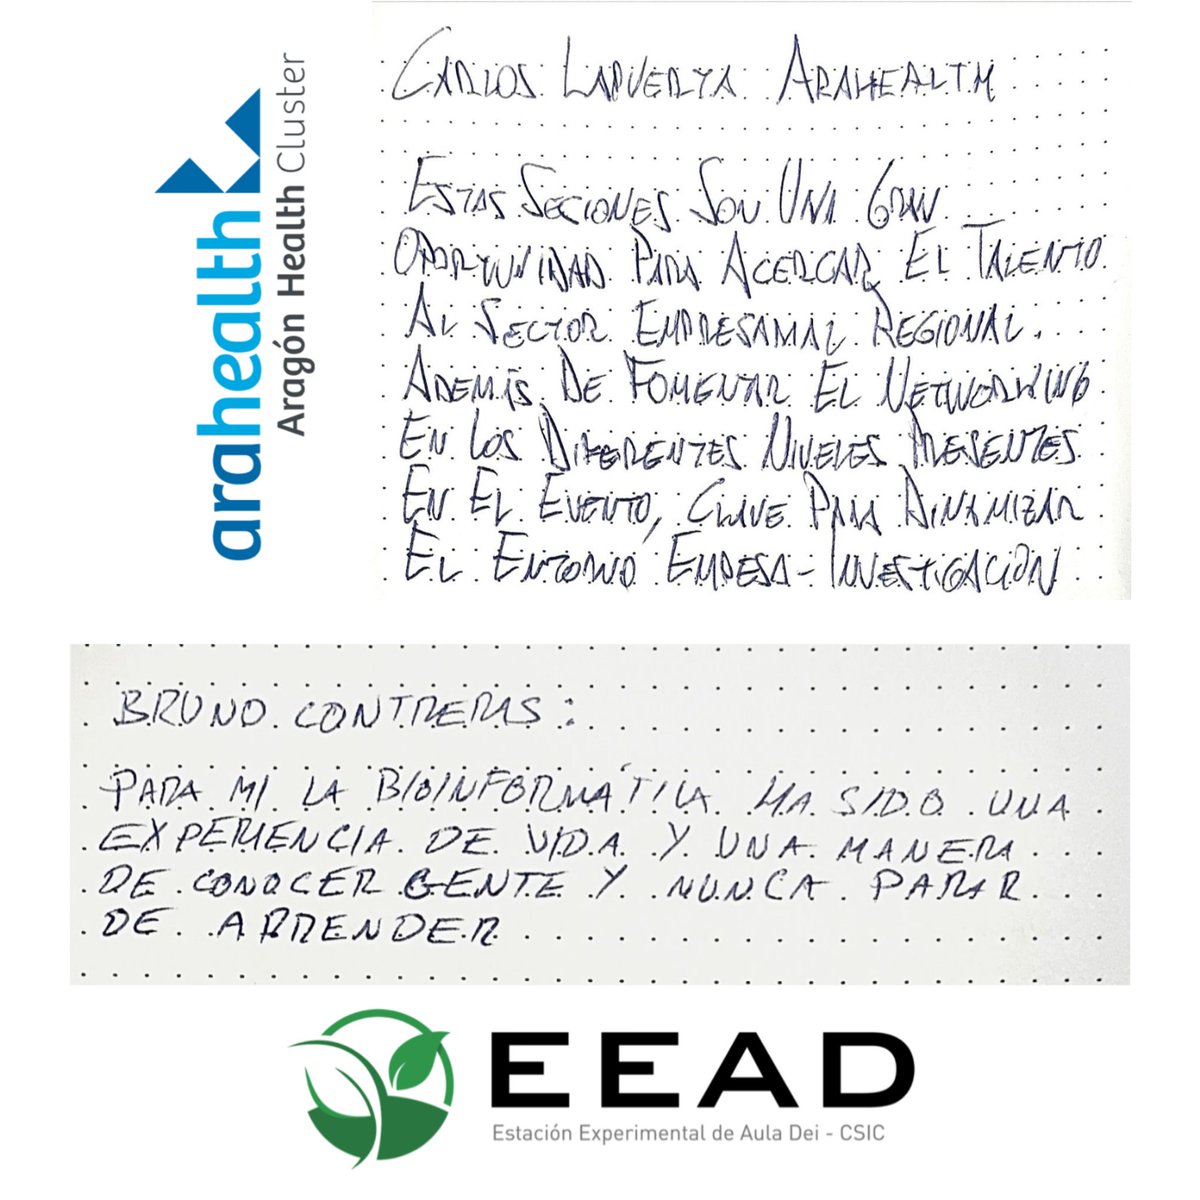 arahealth
Aragón Health Cluster
CARLOS LAPUERTA ARAHEALTH
ESTAS SECIONES SON UNA GRAN
OPORTUNIDAD PARA ACERCAR EL TALENTO
AL SECTOR EMPRESARIAL REGIONAL.
ADEMÁS DE FOMENTAR EL NETWORKING
EN LOS DIFERENTES NIVELES PRESENTES
EN EL EVENTO, CLAVE PARA DINAMIZAR
EL ENTORNO EMPESA-INVESTIGACIÓN
BRUNO CONTRERAS:
PARA MI LA BIOINFORMÁTICA HA SIDO UNA
EXPERIENCIA DE VIDA Y UNA MANERA
DE CONOCER GENTE Y NUNCA PARAR
DE APRENDER
EEAD
Estación Experimental de Aula Dei - CSIC